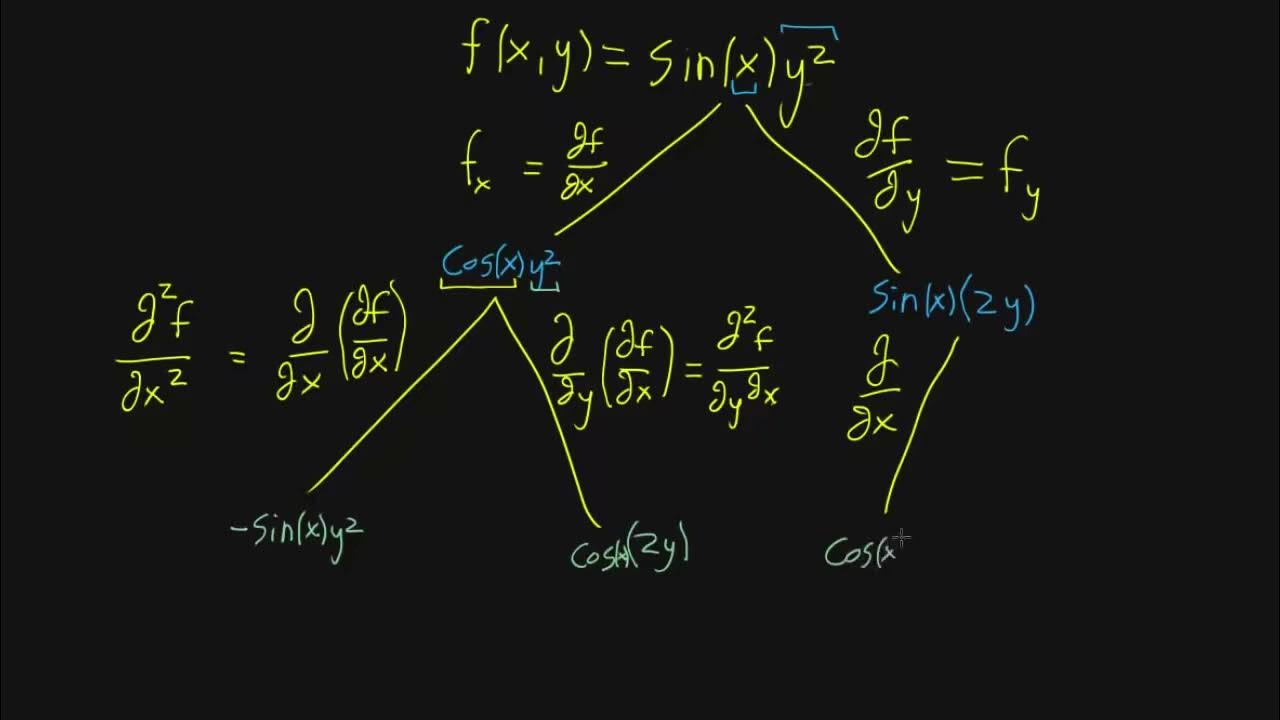 f(x,y) = sin(x)y²
fₓ = ∂f/∂x
∂f/∂y = f_y
Cos(x)y²
Sin(x)(2y)
∂²f/∂x² = ∂/∂x(∂f/∂x)
∂/∂y(∂f/∂x) = ∂²f/∂y∂x
∂/∂x
-Sin(x)y²
Cos(x)(2y)
Cos(x